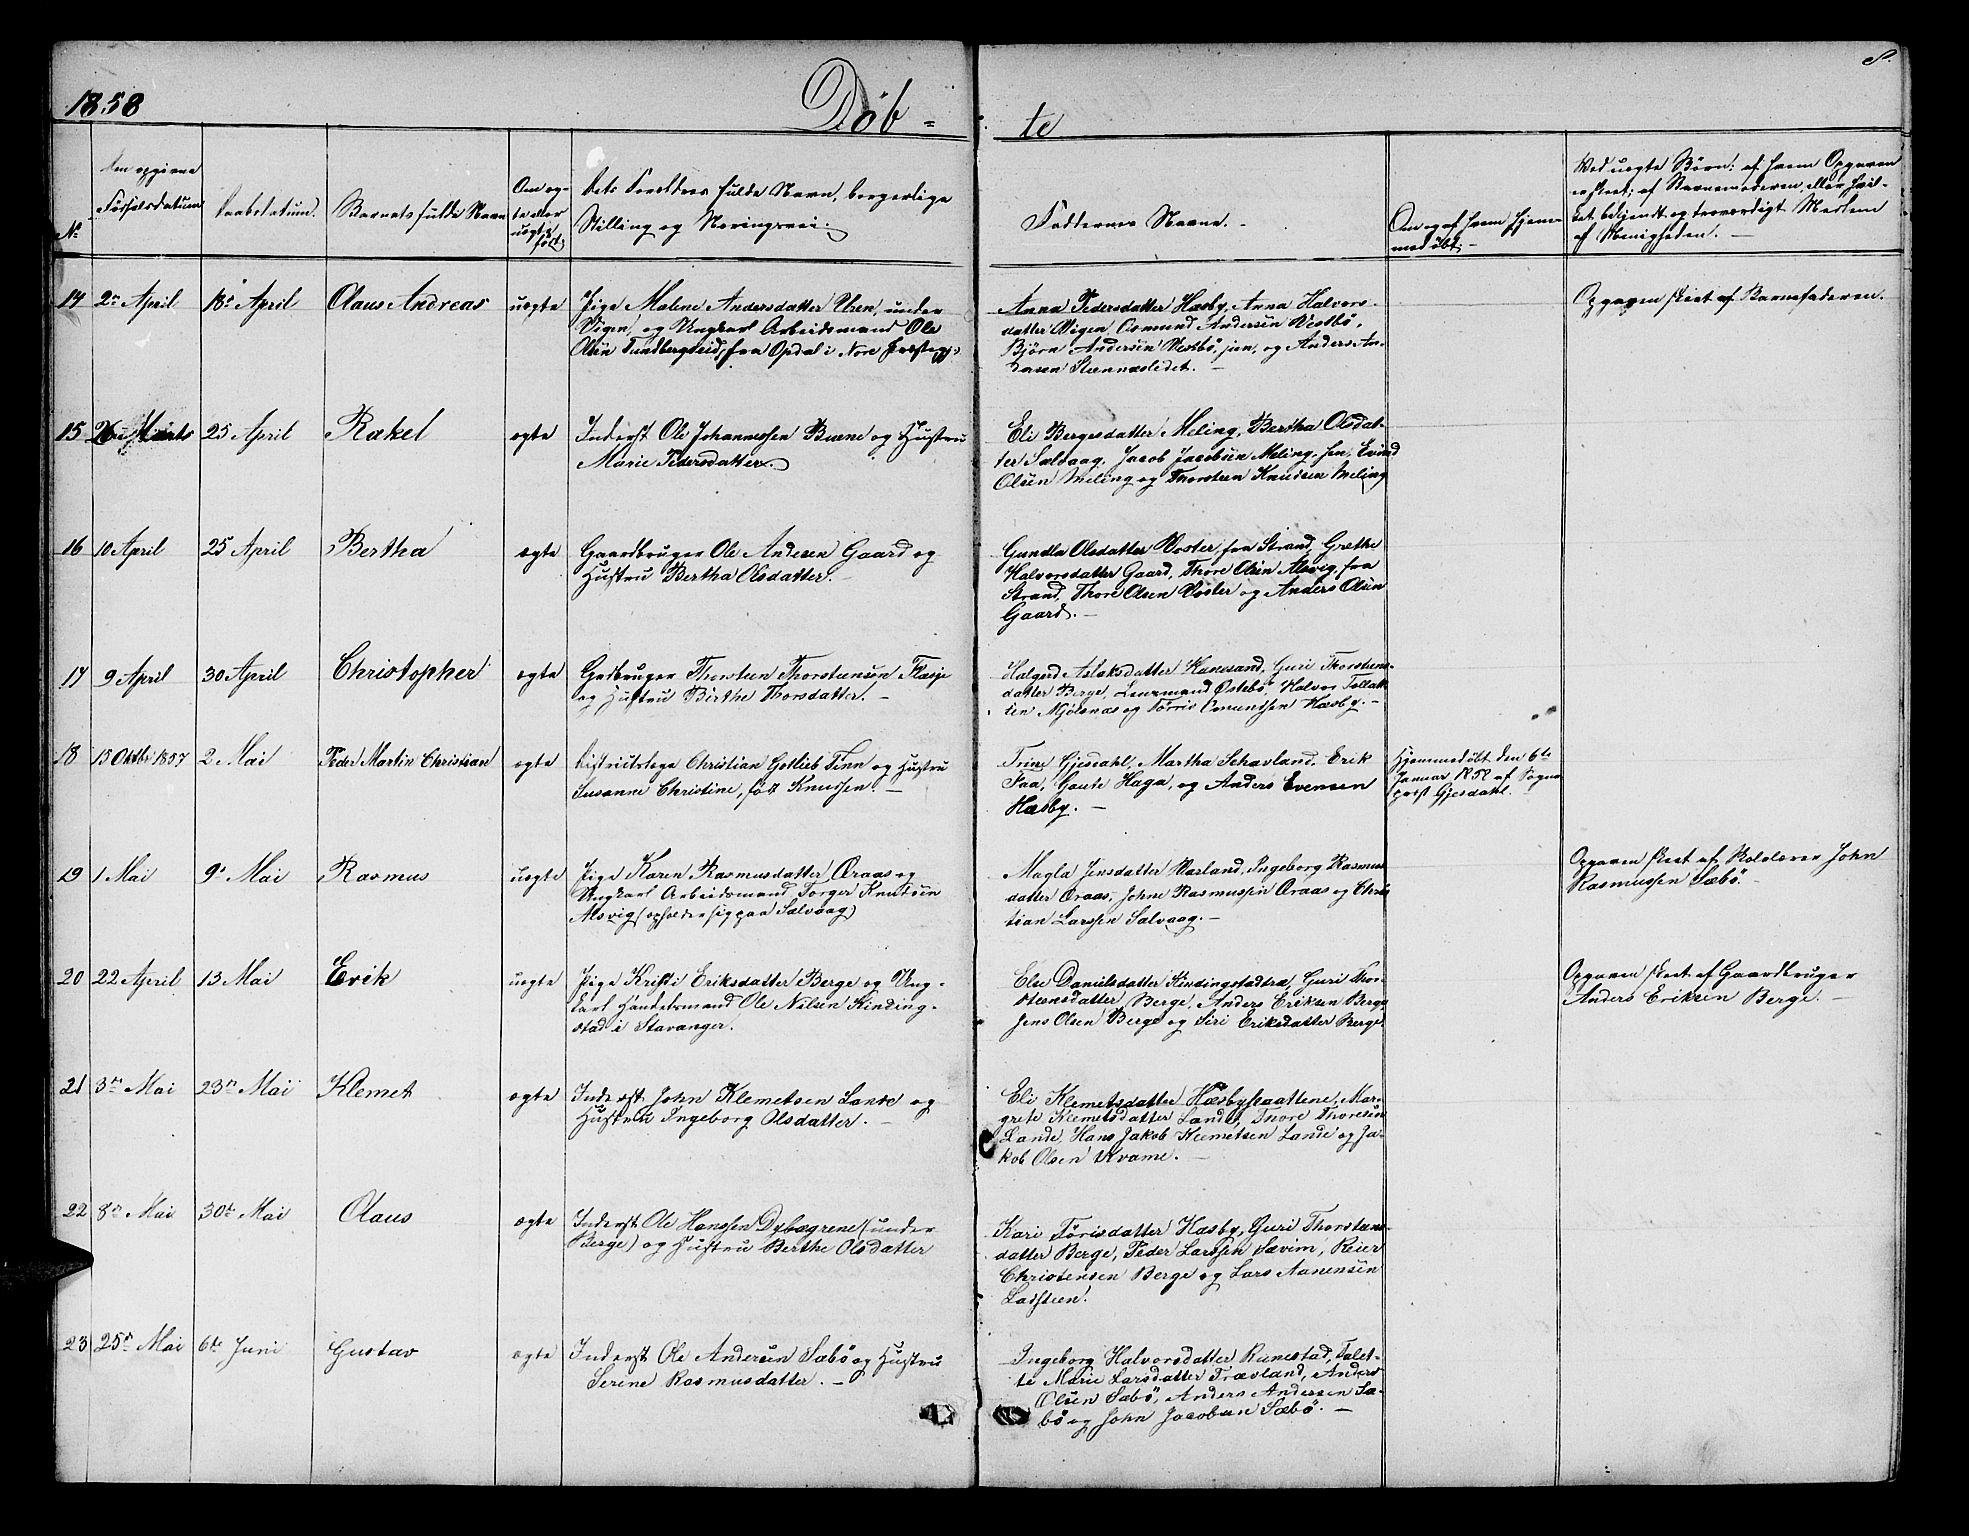 1858 Døb- te 8.
No
Den opgivne Fødselsdatum
Daabsdatum.
Barnets fulde Navn
Om ægte eller uægte født.
Dets Forældres fulde Navn, borgerlige
Stilling og Næringsvei.
Faddernes Navne. -
Om og af hvem hjemmedøbt. -
Ved uægte Børn: af hvem Opgaven
er skeet; af Barnemoderen eller hvil-
ket bekjendt og troværdigt Medlem
af Menigheden. -
14 2den April 18de April Olaus Andreas uægte
Pige Malene Andersdatter Uren, under
Vigen, og Ungkarl Arbeidsmand Ole
Olsen fra Opdal i Nore
Anna Pedersdatter Hæsby, Anna Halvors-
datter Vigen, Osmund Andersen Vestbø,
Bjørn Andersen Vestbø, jun, og Anders An-
dersen
Opgaven skeet af Barnefaderen.
15 26de Marts 25 April Rakel ægte
Inderst Ole Johannessen Buene og Hustru
Marie Pedersdatter.
Eli Bergesdatter Meling, Bertha Olsdat-
ter Salvaag, Jacob Jacobsen Meling, sen, Evind
Olsen Meling og Thorsteen Knudsen Meling
16 10 April 25 April Bertha ægte
Gaardbruger Ole Andersen Gaard og
Hustru Bertha Olsdatter. -
Gundla Olsdatter Voster, fra Strand, Grethe
Halvorsdatter Gaard, Thore Olsen Alsvig, fra
Strand, Thore Olsen Voster og Anders Olsen
Gaard. -
17 9 April 30 April Christopher ægte
Gdbruger Thorsteen Thorsteensen
og Hustru Birthe Thorsdatter. -
Halgerd Aslaksdatter Kanesand, Guri Thorsteens-
datter Berge, Østebø, Halvor
Mjølsnæs og Tørris Omundsen Hæsby. -
18 15 Oktbr 1857 2 Mai Peder Martin Christian ægte
Districtslæge Christian Gotlieb Finn og Hustru
Susanne Christine, født Knudsen. -
Trine Gjesdahl, Martha Schavland, Erik
Faa, Gaute Haga, og Anders Evensen
Hæsby. -
Hjemmedøbt den 6te
Januar 1858 af Sogne
præst Gjesdahl.
19 1 Mai 9de Mai Rasmus uægte
Pige Karen Rasmusdatter Øraas og
Ungkarl Arbeidsmand Torger Knudsen
Alsvig (opholder sig paa Salvaag)
Magla Jensdatter Varland, Ingeborg Rasmus
datter Øraas, John Rasmussen Øraas og Chris
tian Larssen Salvaag. -
Opgaven skeet af Skolelærer John
Rasmussen Sæbø.
20 22 April 13 Mai Erik uægte
Pige Kristi Eriksdatter Berge og Ung-
karl Handelsmand Ole Nilsen Kinding-
stad i Stavanger.
Else Danielsdatter Kindingstadtræ, Guri Thor-
steensdatter Berge, Anders Eriksen Berge,
Jens Olsen Berge og Siri Eriksdatter Berge.
Opgaven skeet af Gaardbruger
Anders Eriksen Berge. -
21 3die Mai 23de Mai Klemet ægte
Inderst John Klemetsen Lande og
Hustru Ingeborg Olsdatter. -
Eli Klemetsdatter Hæsbypladtsene, Mar-
grete Klemetsdatter Lande, Thore Thoresen
Lande, Hans Jakob Klemetsen Lande og Ja-
kob Olsen Kvame. -
22 8de Mai 30te Mai Olaus ægte
Inderst Ole Hanssen Dybegrene (under
Berge) og Hustru Berthe Olsdatter
Kari Tørrisdatter Hæsby, Guri Thorsteens-
datter Berge, Peder Larssen Sævim, Reier
Christensen Berge og Lars Aanensen
Ladsteen.
23 25de Mai 6te Juni Gustav ægte
Inderst Ole Andersen Sæbø og Hustru
Serine Rasmusdatter. -
Ingeborg Halvorsdatter Runestad, Talet-
te Marie Larsdatter Trævland, Anders
Olsen Sæbø, Anders Andersen Sæ-
bø og John Jacobsen Sæbø. -